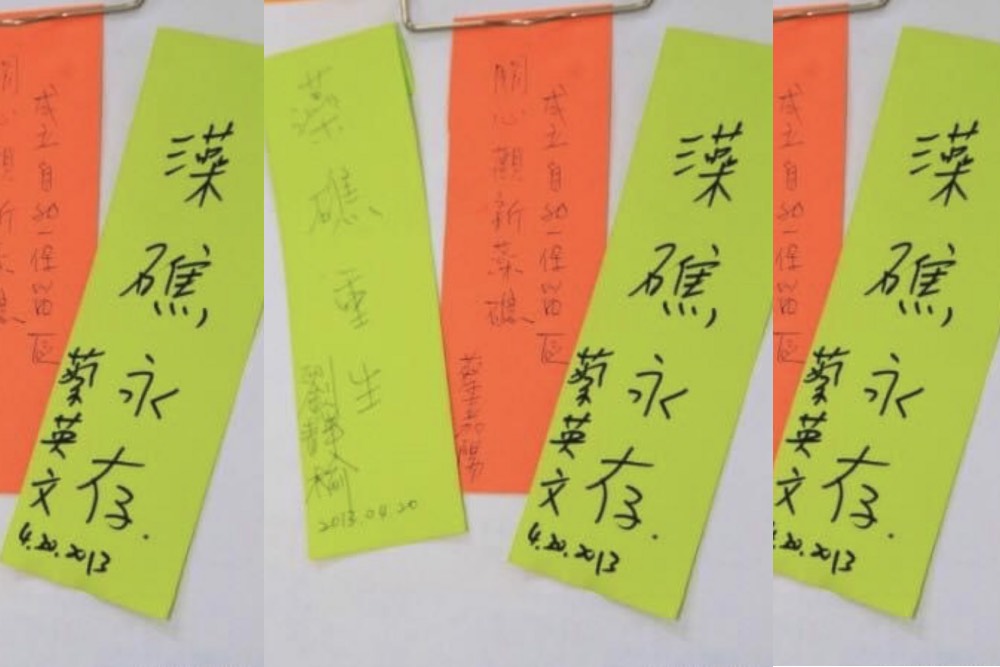 成立自然保留區
藻礁永存.
蔡英文
4.20.2013
藻礁重生
劉靜榆
2013.04.20
成立自然保留區
關心觀新藻礁
藻礁永存.
蔡英文
4.20.2013
成立自然保留區
藻礁永存.
蔡英文
4.20.2013